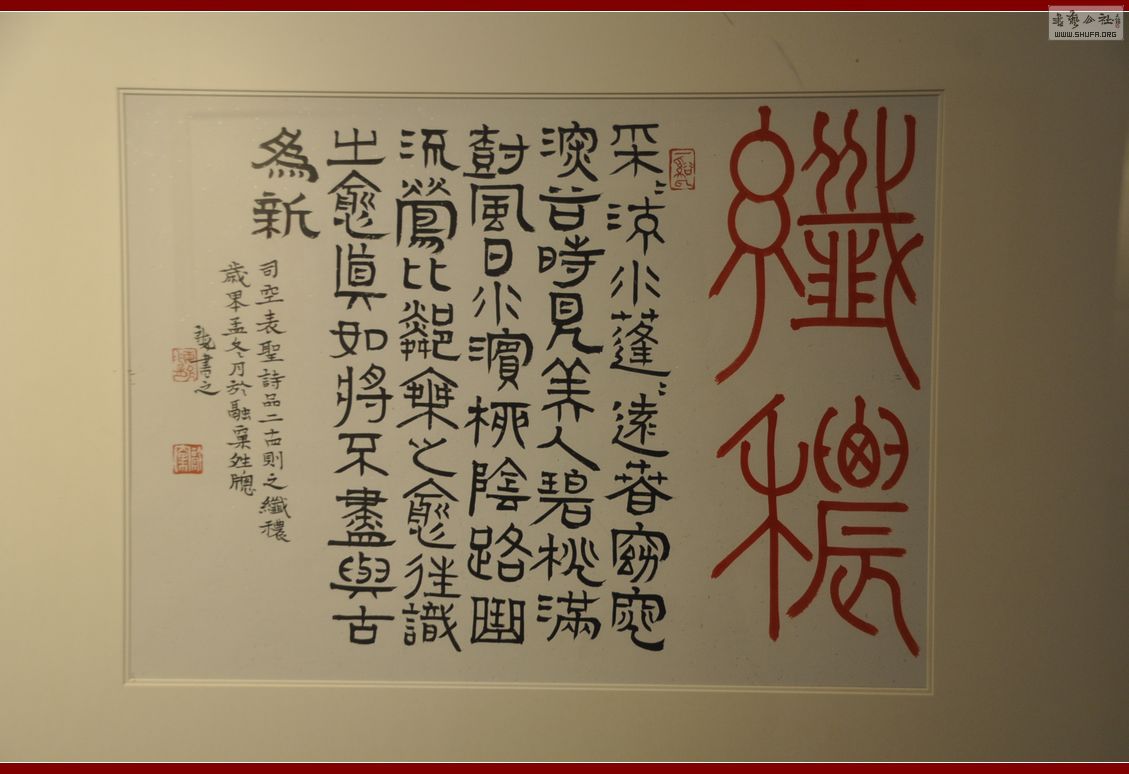 纖穠
采〻流水蓬〻遠春窈窕
深谷時見美人碧桃滿
樹風日水濱柳陰路曲
流鶯比鄰乘之愈往識
之愈真如將不盡與古
為新
司空表聖詩品二十四則之纖穠
歲畢孟冬月於融
書之
書藝公社
WWW.SHUFA.ORG